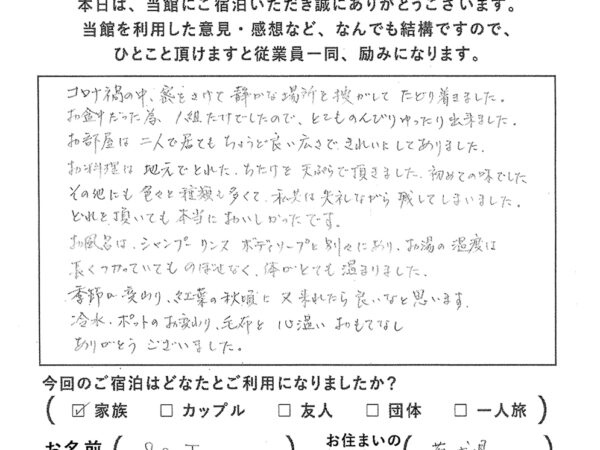 本日は、当館にご宿泊いただき誠にありがとうございます。
当館を利用した意見・感想など、なんでも結構ですので、
ひとこと頂けますと従業員一同、励みになります。
コロナ禍の中、密をさけて静かな場所を捜がしてたどり着きました。
お盆中だった為、1組だけでしたので、とてものんびりゆったり出来ました。
お部屋は二人で居てもちょうど良い広さできれいにしてありました。
お料理は地元でとれた、おたけを天ぷらで頂きました。初めての味でした
その他にも色々と種類も多くて、私共は失礼ながら残してしまいました。
どれを頂いても本当においしかったです。
お風呂は、シャンプーリンスボディソープと別々にあり、お湯の温度は
長くつかっていてものぼせなく、体がとても温まりました。
季節が変わり、紅葉の秋頃に又来れたら良いなと思います。
冷水、ポットのお変わり、毛布と心温いおもてなし
ありがとうございました。
今回のご宿泊はどなたとご利用になりましたか?
( ☑ 家族 □ カップル □ 友人 □ 団体 □ 一人旅 )
お名前 ( ) お住まいの (